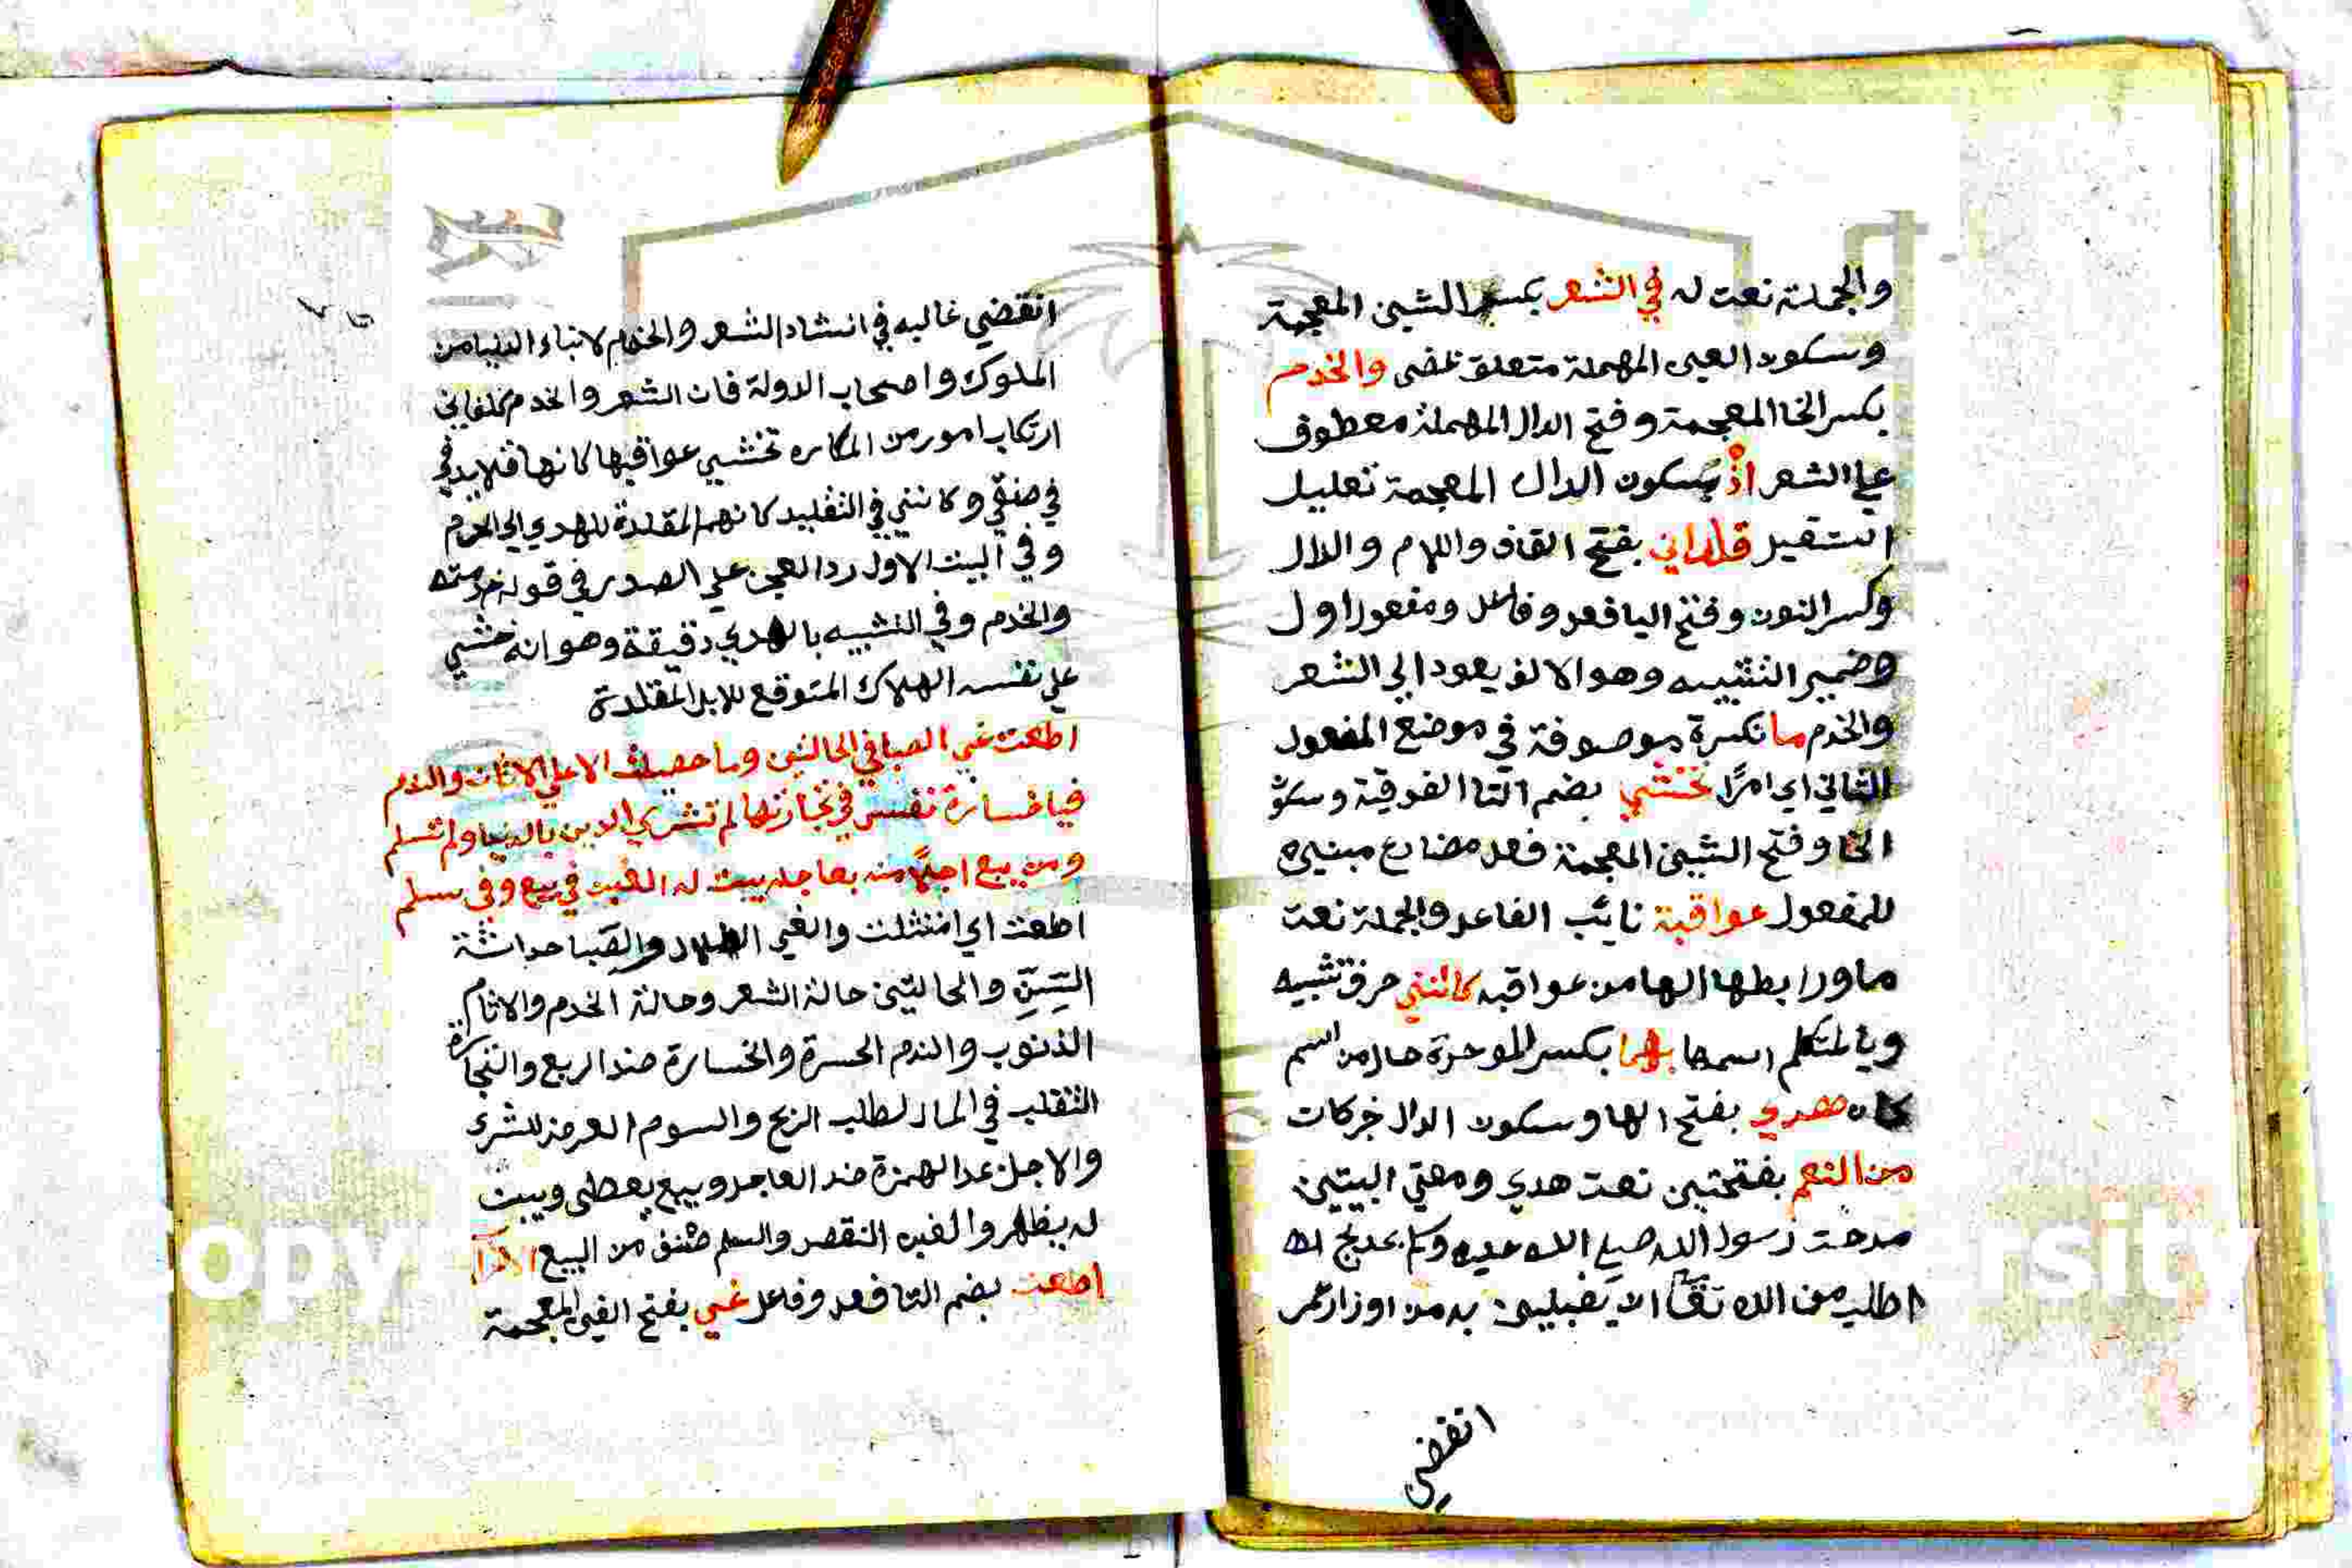 والجملة نعت له في الشعر بكسر الشين المعجمة
وسكون العين المهملة متعلق بمضى والخدم
بكسر الخا المعجمة وفتح الدال المهملة معطوف
علي الشعر اذ بسكون الدال المعجمة تعليل
استقيل قلداني بفتح القاف واللام والدال
وكسر النون وفتح اليا فعل وفاعل ومفعول اول
وضمير التثنيه وهو الالف يعود الي الشعر
والخدم ما نكرة موصوفة في موضع المفعول
الثاني اي امرًا تخشي بضم التا الفوقية وسكو
الخا وفتح الشين المعجمة فعل مضارع مبني
للمفعول عواقبة نايب الفاعل والجملة نعت
ما ورابطها الها من عواقبه كانني حرف تشبيه
ويا المتكلم اسمها بهما بكسر الموحدة حال من اسم
كان هدي بفتح الها وسكون الدال خبر كان
من النعم بفتحتين نعت هدي ومعني البيتين
مدحت رسول الله صلي الله عليه وسلم بمديح
اطلب من الله تعا ان يقيلني به من اوزار عمر
انقضي
انقضي غالبه في انشاد الشعر والخدم لابناء الدنيا من
الملوك واصحاب الدولة فان الشعر والخدم كلفاني
ارتكاب امور من المكاره تخشي عواقبها كانها قلايد في
في عنقي وكانني في التقليد كانهما المقلدة للهدي الي الحرم
وفي البيت الاول رد العجز علي الصدر في قوله خدمته
والخدم وفي التشبيه بالهدي دقيقة وهو انه خشي
علي نفسه الهلاك المتوقع للابل المقلدة
اطعت غي الصبا في الحالتين وما حصلت الا علي الاثام والندم
فيا خسارة نفس في تجارتها لم تشتري الدين بالدنيا ولم تسم
ومن يبع اجلًا منه بعاجله يبن له الغبن في بيع وفي سلم
اطعت اي امتثلت والغي الضلال والصبا حداثة
السِّنِّ والحالتين حالة الشعر وحالة الخدم والاثام
الذنوب والندم الحسرة والخسارة ضد الربح والتجارة
التقلب في المال لطلب الربح والسوم العرض للشرا
والاجل بمد الهمزة ضد العاجل ويبيع يعطى ويبن
له يظهر والغبن النقص والسلم صنف من البيع
اطعت بضم التا فعل وفاعل غي بفتح الغين المعجمة